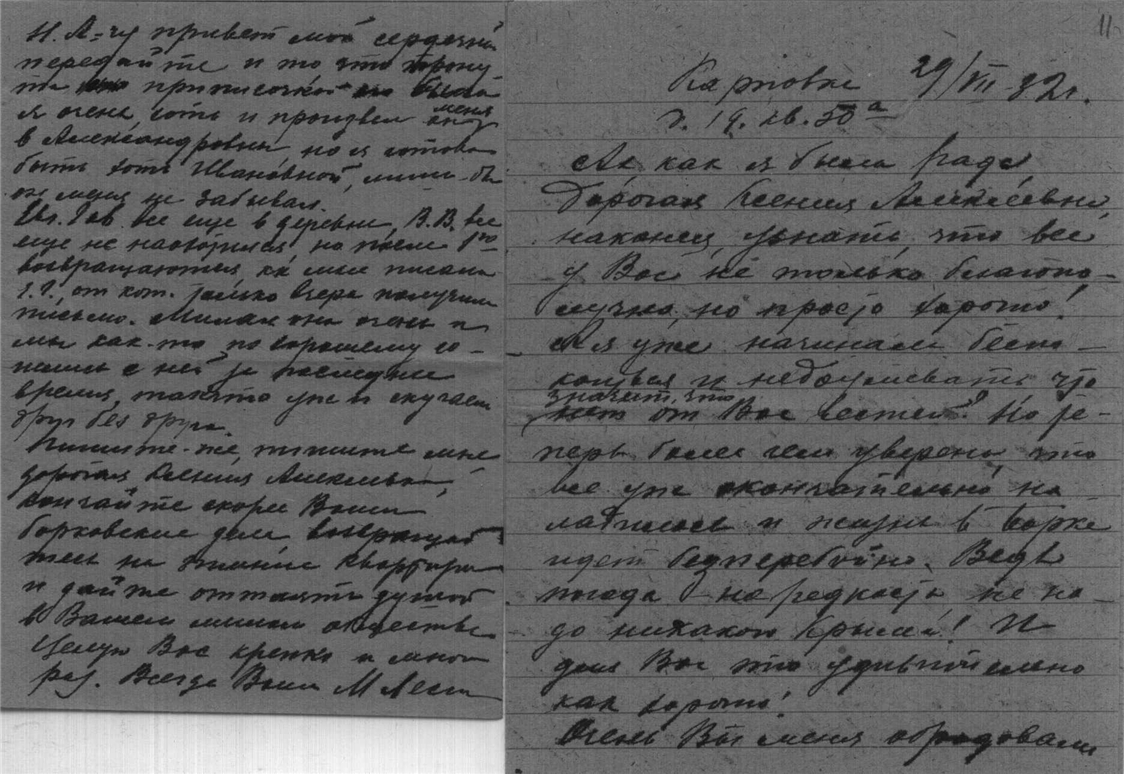 11
Карповка 29/VII-32г.
д. 19. кв. 50а
Ах как я была рада,
дорогая Ксения Алексеевна,
наконец, узнать, что все
у Вас не только благопо-
лучно, но просто хорошо!
А я уже начинала беспо-
коиться и недоумевать что
значит, что
нет от Вас вестей? Но те-
перь более чем уверена, что
все уже окончательно на
ладилось и жизнь в Борке
идет бесперебойно. Ведь
погода на редкость не на-
до никакого Крыма! И
для Вас это удивительно
как хорошо!
Очень Вы меня обрадовали
Н. А-чу привет мой сердечный
передайте и то что тронута
припиской была
я очень, хоть и произвел меня
в Александровны, но я готова
быть хоть Ивановной, лишь бы
он меня не забывал.
все еще в деревне, В.В. все
еще не наговорился, но после 1го
возвращаются, как мне писала
от кот. только вчера получила
письмо. Милая она очень и
мы как-то по хорошему со-
шлись с ней за последнее
время, так что уже и скучаем
друг без друга.
Пишите-же, пишите мне
дорогая Ксения Алексеевна,
кончайте скорее Ваши
борковские дела возвращай
тесь на зимние квартиры
и дайте оттаять душой
в Вашем милом обществе
Целую Вас крепко и много
раз. Всегда Ваша М